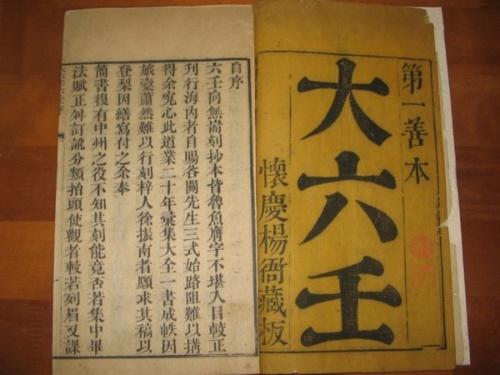 第一善本
大六壬
懷慶楊衙藏板
自序
六壬向無耑刻抄本皆魯魚膺字不堪入目較正
刊行海內者自賜各關先生三式始路阻難以搆
得余究心此道業二十年彙集大全一書成帙因
旅橐蕭然難以行刻梓人徐振南者願求其稿以
登梨因繕寫付之余奉
簡書復有中州之役不知其刻能竟否若集中畢
法賦正舛訂訛分類抬頭使觀者較若列眉又課